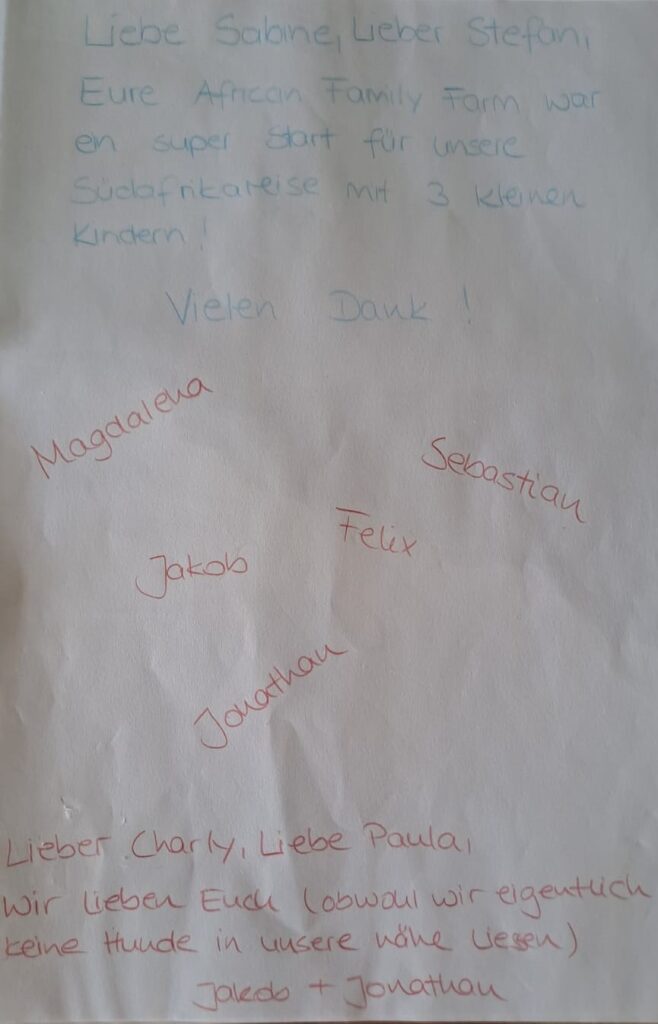 Liebe Sabine, Lieber Stefan,
Eure African Family Farm war
ein super Start für unsere
Südafrikareise mit 3 kleinen
Kindern!
Vielen Dank!
Magdalena
Sebastian
Felix
Jakob
Jonathan
Lieber Charly, Liebe Paula,
wir lieben Euch (obwohl wir eigentlich
keine Hunde in unsere nähe liesen)
Jakob + Jonathan